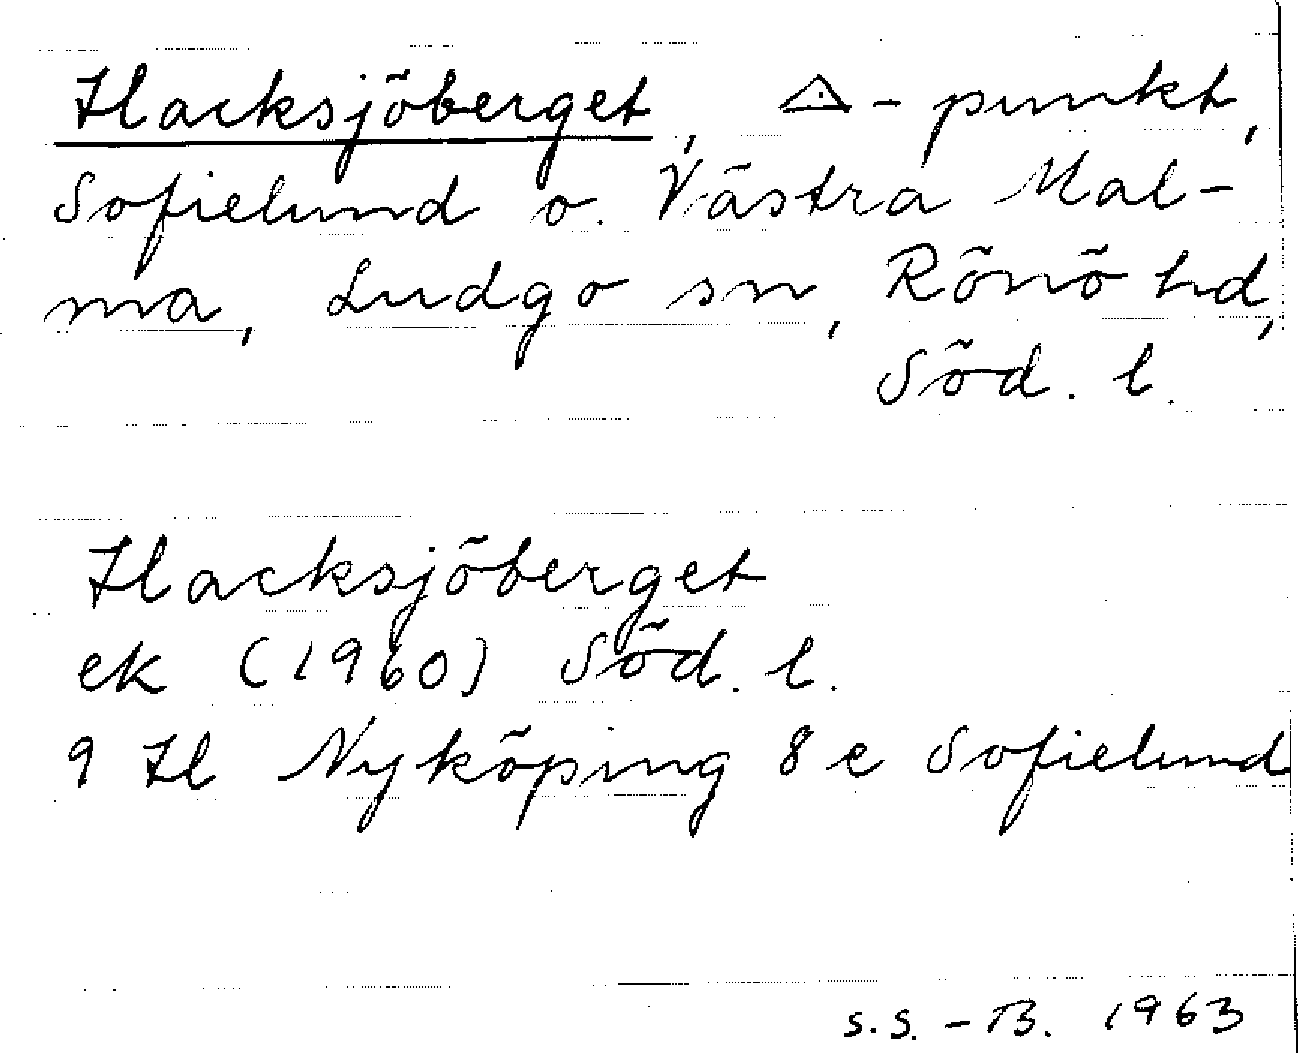 Hacksjöberget, △-punkt,
Sofielund o. Västra Mal-
ma, Ludgo sn, Rönö hd,
Söd. l.
Hacksjöberget
ek (1960) Söd. l.
9 H Nyköping 8 e Sofielund
S.S.-B. 1963